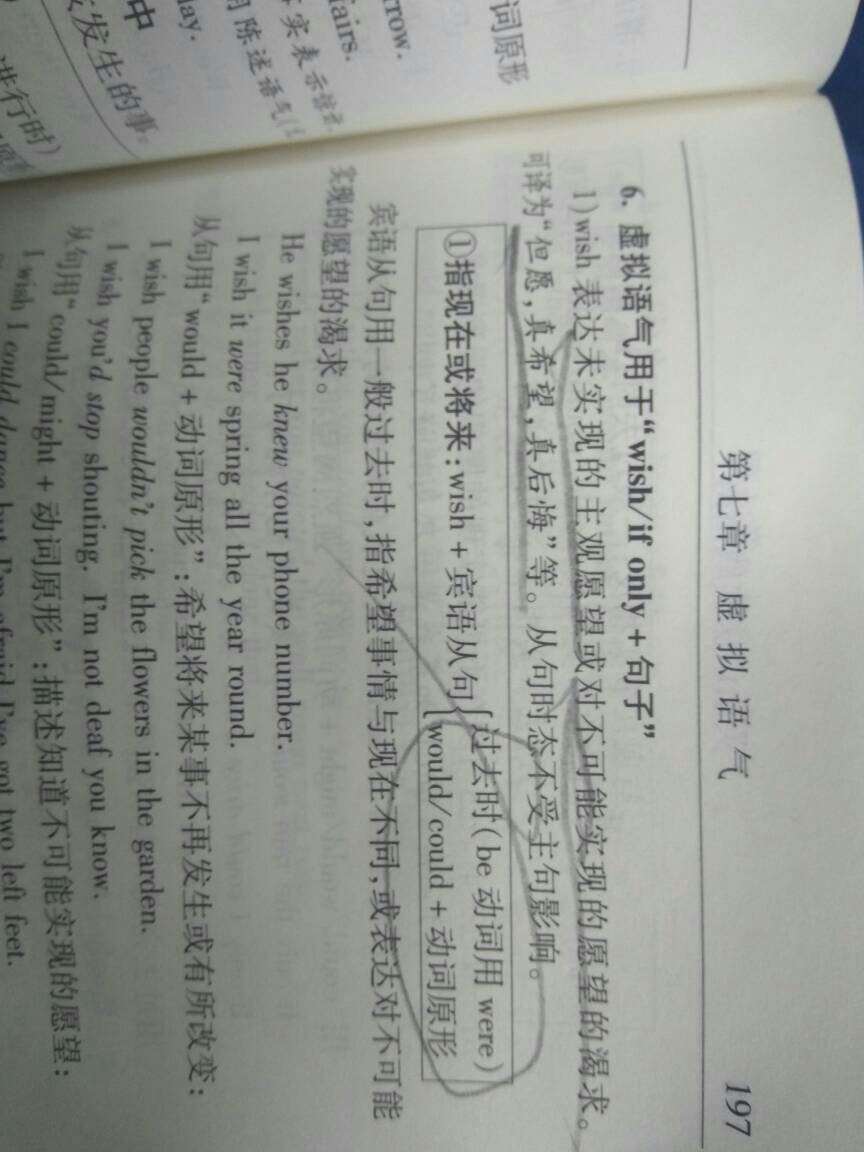 第七章 虚拟语气 197
6. 虚拟语气用于“wish/if only + 句子”
1)wish 表达未实现的主观愿望或对不可能实现的愿望的渴求。
可译为“但愿,真希望,真后悔”等。从句时态不受主句影响。
①指现在或将来:wish + 宾语从句{过去时(be 动词用 were)
would/could + 动词原形
宾语从句用一般过去时,指希望事情与现在不同,或表达对不可能
实现的愿望的渴求。
He wishes he knew your phone number.
I wish it were spring all the year round.
从句用“would + 动词原形”;希望将来某事不再发生或有所改变:
I wish people wouldn't pick the flowers in the garden.
I wish you'd stop shouting. I'm not deaf you know.
从句用“could/might + 动词原形”;描述知道不可能实现的愿望:
I wish I could dance but I'm afraid I've got two left feet.
词原形
rrow.
fairs.
实表示
用陈述语气
ay.
中
发生的事
进行时)